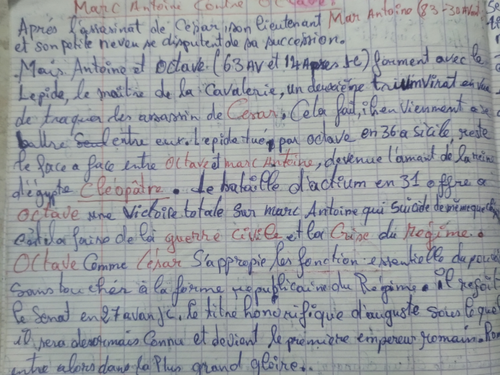 Marc Antoine Contre Octave
Après l'assasinat de César, son lieutenant Mar Antoine (83-30 Av
et son petit neveu se disputent de sa succession.
- Mais Antoine et Octave (63 AV et 14 Apres JC) forment avec le
Lepide, le maître de la Cavalerie, un deuxième triumvirat en vue
de traquer des assassin de César. Cela fait, ils en viennent a se
battre entre eux. Lepide tué par octave en 36 a Sicile, reste
le face a face entre Octave et marc Antoine, devenue l'amant de la reine
d'egypte Cléopâtre. Le bataille d'actium en 31 offre a
Octave une Victoire totale sur marc Antoine qui suicide de même que
c'est la faire de la guerre civile et la Crise du Regime.
Octave Comme César s'appropie les fonction essentielle du pouvoir
sans toucher à la forme republicaine du Regime. il reçoit
le Senat en 27 avan JC, le titre honorifique d'auguste sous lequel
il sera desormais Connu et devient le première empereur romain. Rom
entre alors dans la Plus grand gloire..